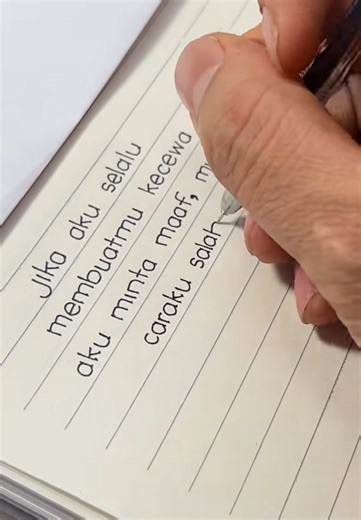 Jika aku selalu
membuatmu kecewa
aku minta maaf,
caraku salah